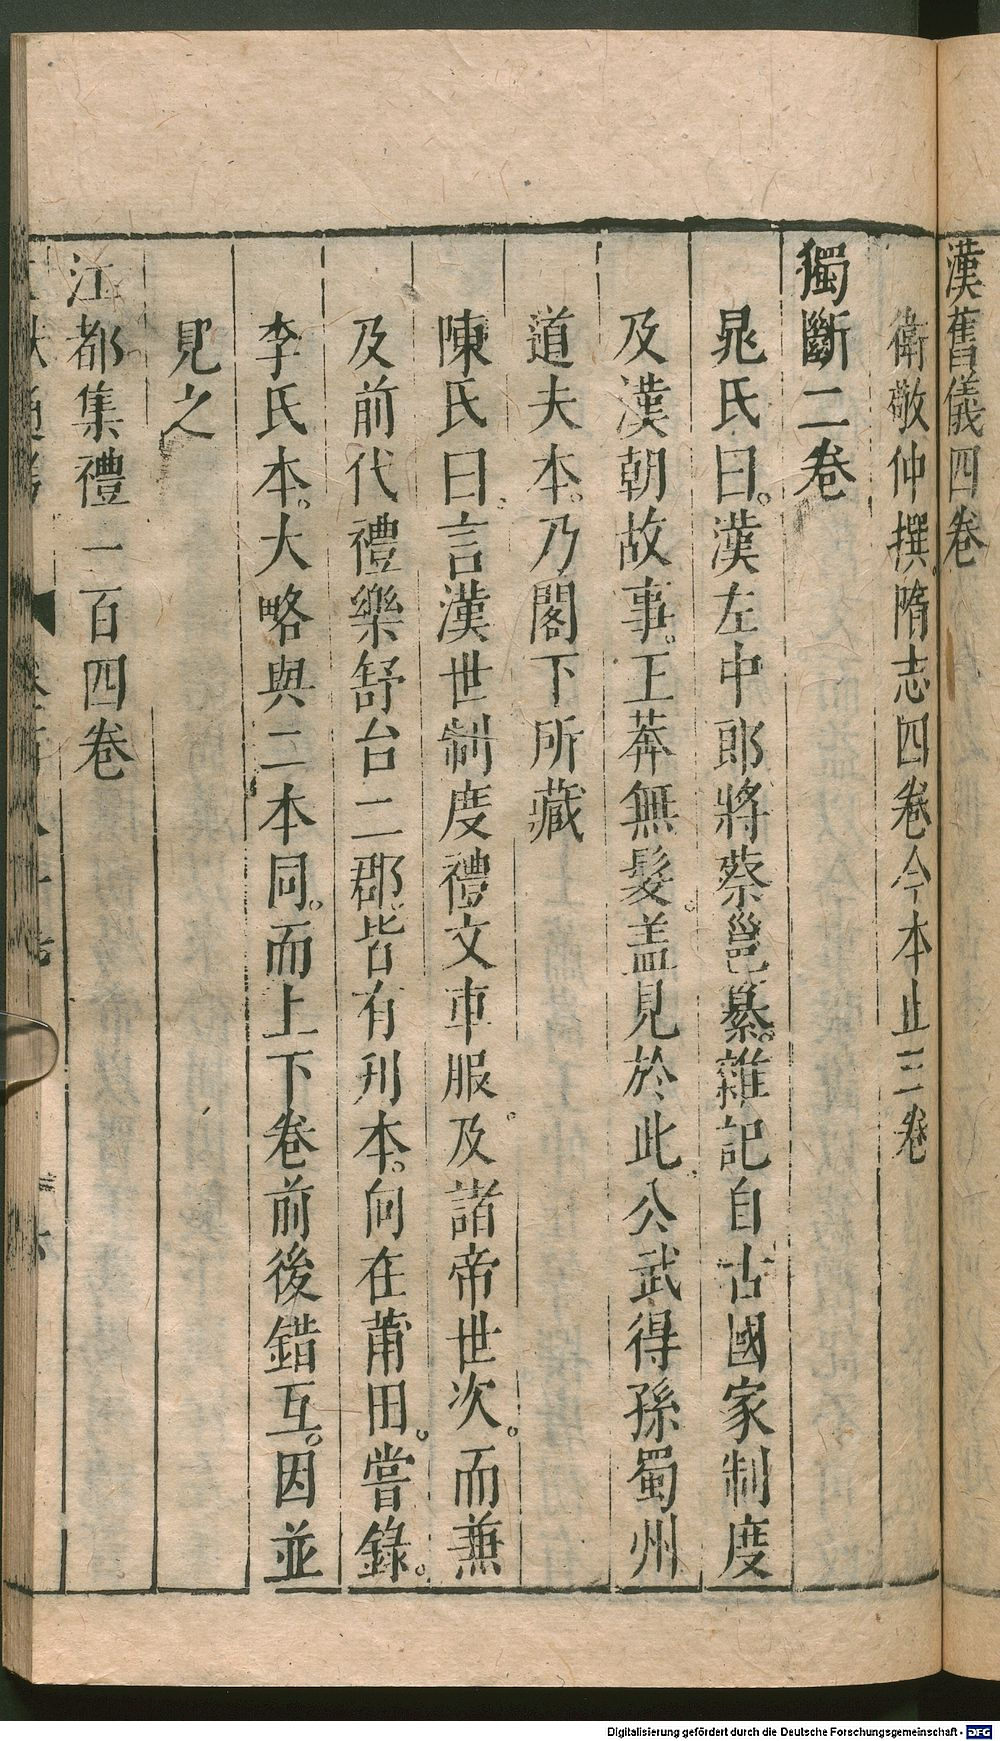 漢舊儀四卷
衛敬仲撰隋志四卷今本止三卷
獨斷二卷
晁氏曰。漢左中郎將蔡邕纂。雜記自古國家制度
及漢朝故事。王莽無髮。盖見於此。公武得孫蜀州
道夫本。乃閣下所藏
陳氏曰。言漢世制度禮文車服。及諸帝世次。而兼
及前代禮樂舒台二郡。皆有刋本。向在莆田。嘗錄。
李氏本。大略與二本同。而上下卷前後錯互。因並
見之
江都集禮一百四卷
Digitalisierung gefördert durch die Deutsche Forschungsgemeinschaft - DFG